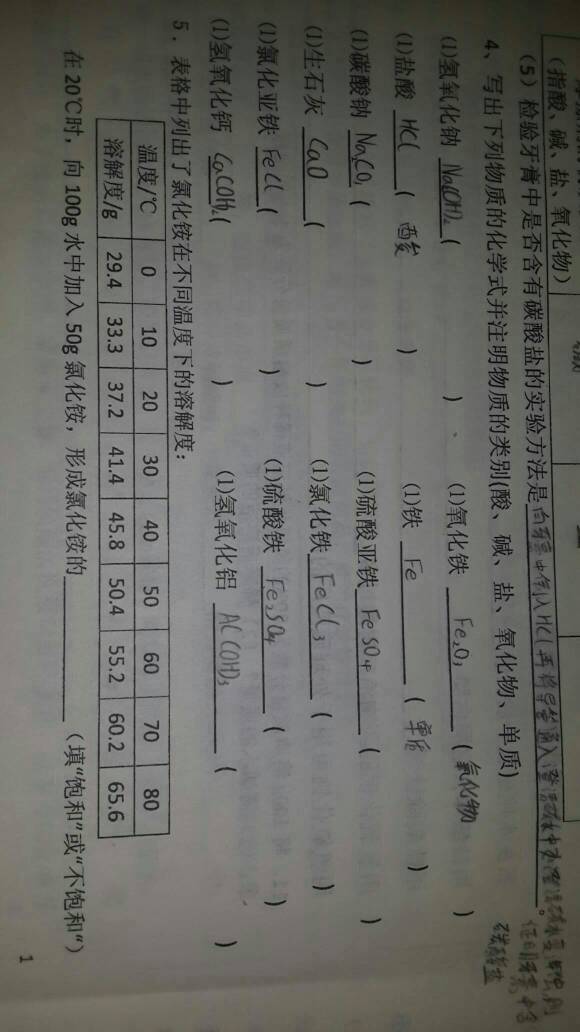 (指酸、碱、盐、氧化物)
(5) 检验牙膏中是否含有碳酸盐的实验方法是
4、写出下列物质的化学式并注明物质的类别(酸、碱、盐、氧化物、单质)
(1)氢氧化钠 Na(OH)2 ( ) (1)氧化铁 Fe2O3 ( 氧化物 )
(1)盐酸 HCl ( 酸 ) (1)铁 Fe ( 单质 )
(1)碳酸钠 Na2CO3 ( ) (1)硫酸亚铁 FeSO4 ( )
(1)生石灰 CaO ( ) (1)氯化铁 FeCl3 ( )
(1)氯化亚铁 FeCl ( ) (1)硫酸铁 Fe2SO4 ( )
(1)氢氧化钙 Ca(OH)2 ( ) (1)氢氧化铝 Al(OH)3 ( )
5. 表格中列出了氯化铵在不同温度下的溶解度:
温度/℃ 0 10 20 30 40 50 60 70 80
溶解度/g 29.4 33.3 37.2 41.4 45.8 50.4 55.2 60.2 65.6
在20℃时,向100g水中加入50g氯化铵,形成氯化铵的______(填“饱和”或“不饱和”)
1